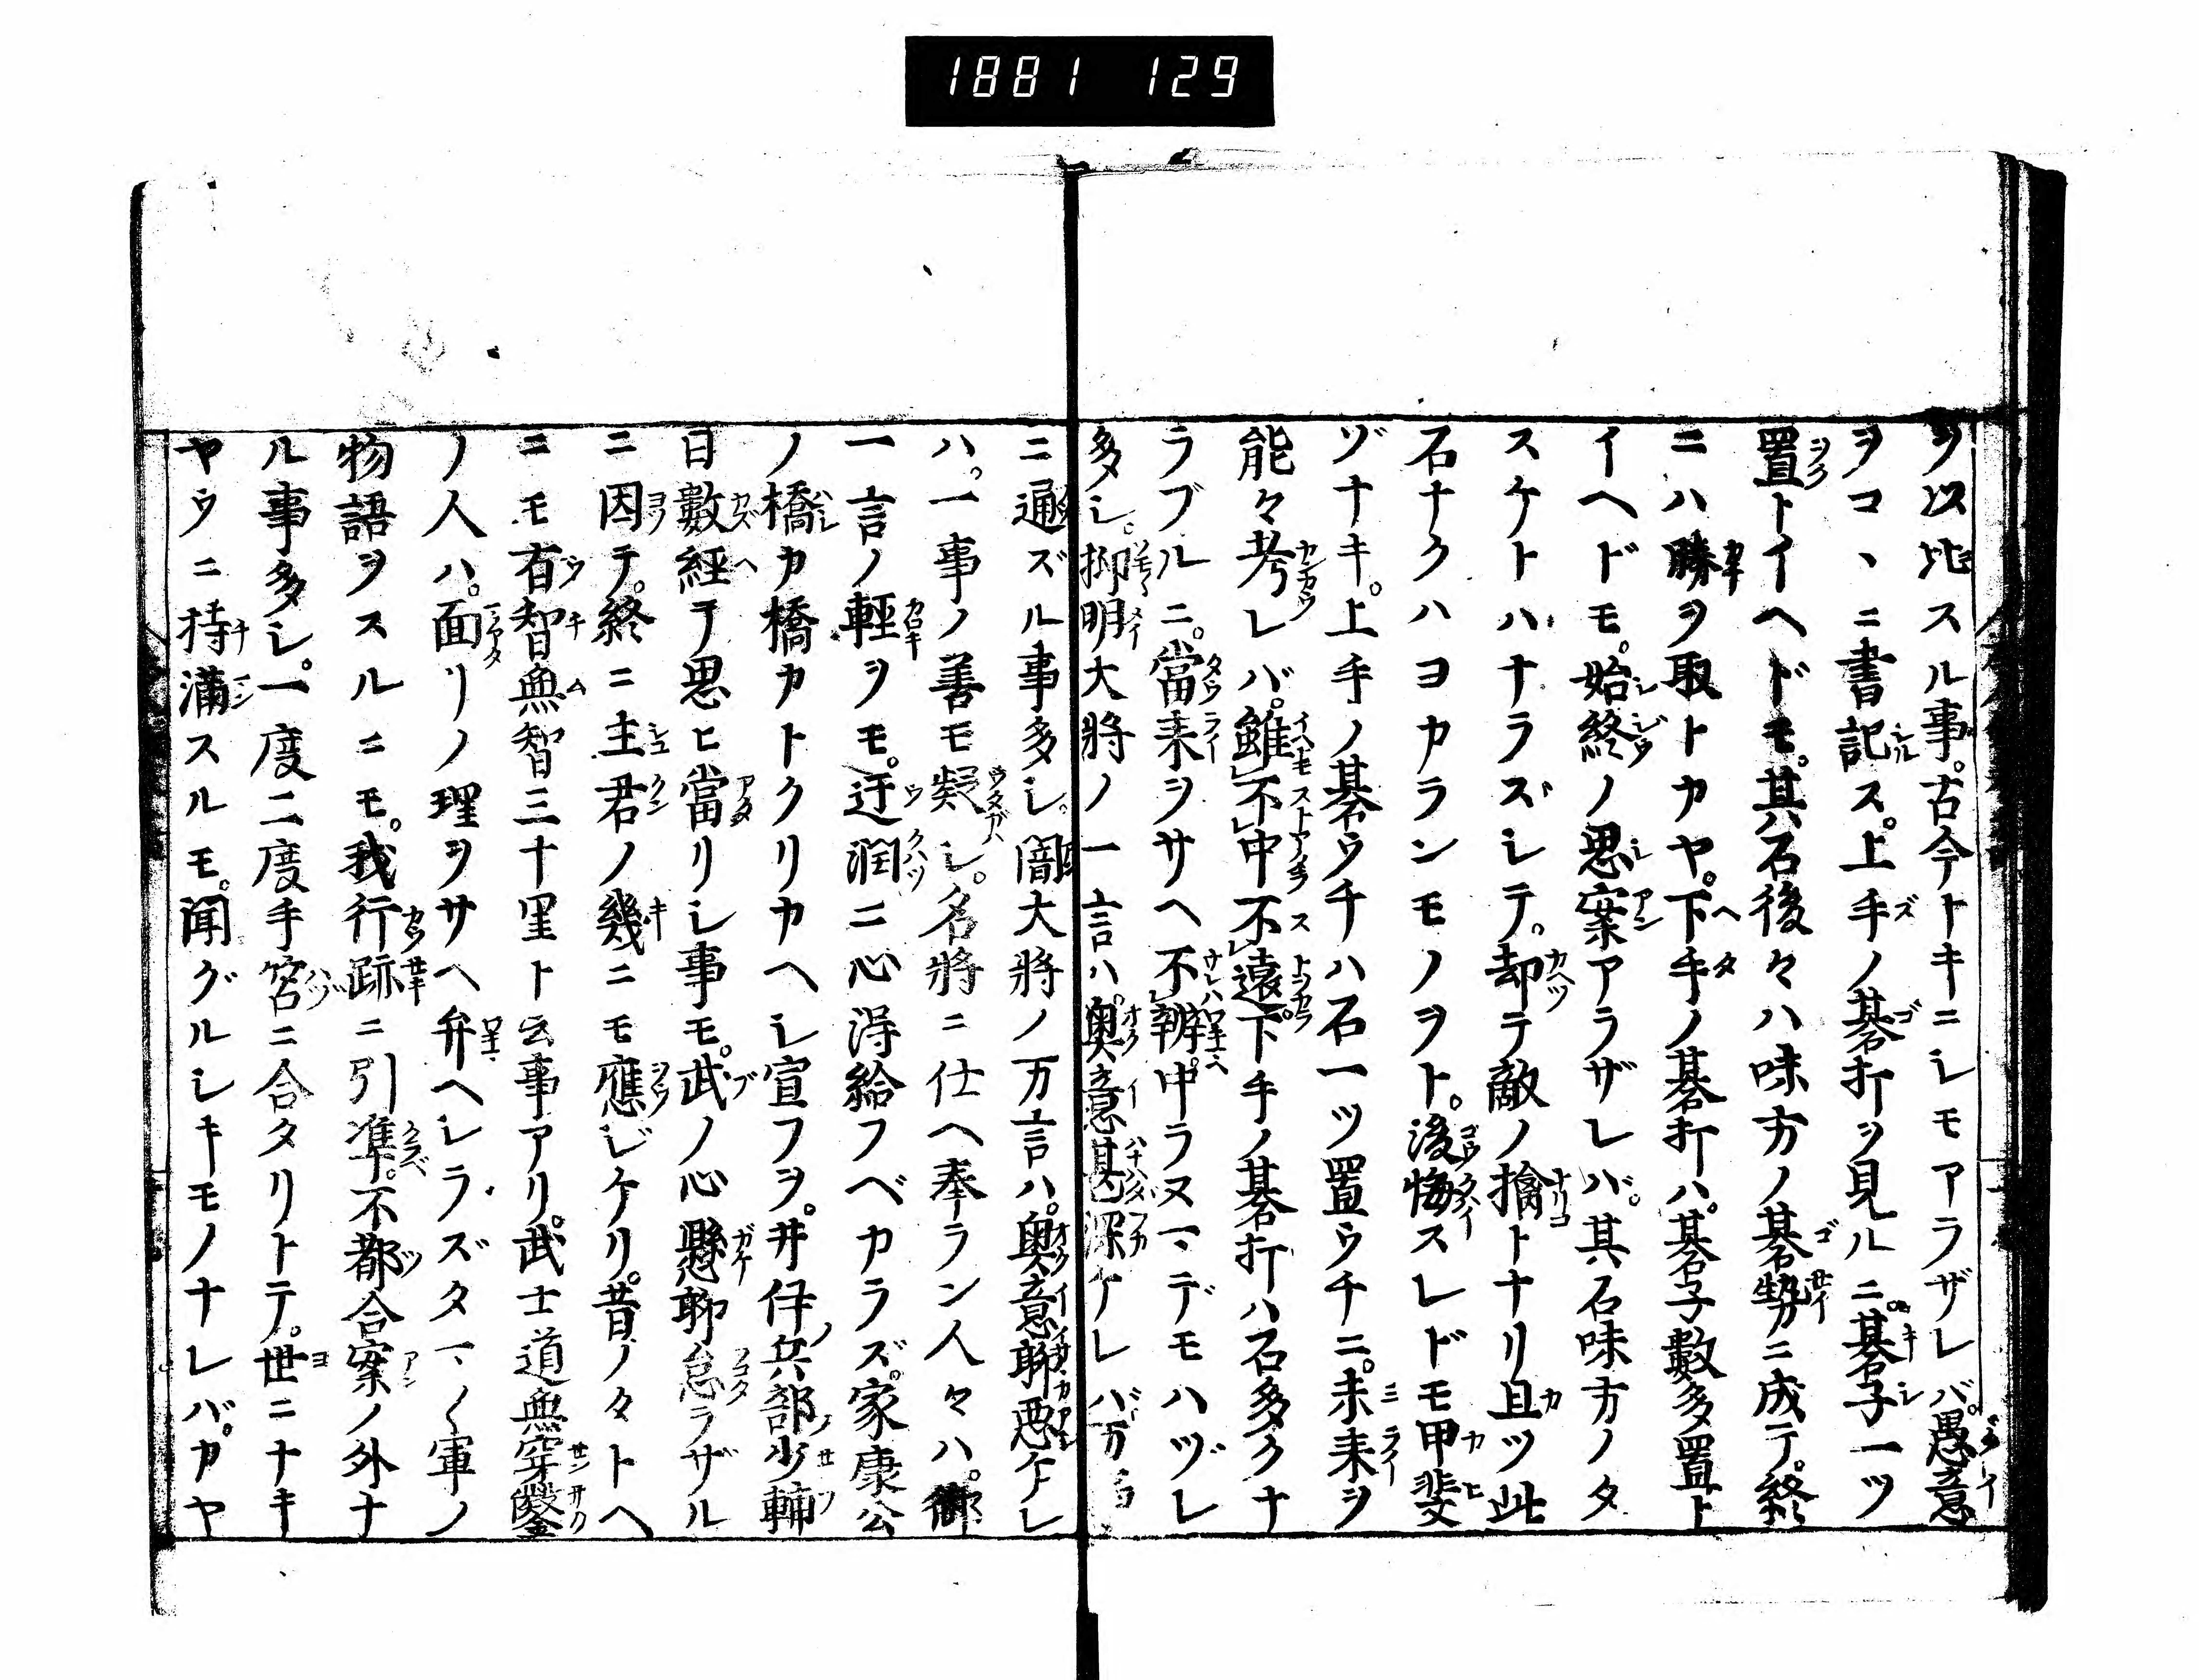 1881 129
ヲ以比スル事。古今トキニシモアラザレバ。愚意
ヲコヽニ書記ス。上手ノ碁打ヲ見ルニ。碁子一ツ
置トイヘドモ。其石後々ハ味方ノ碁勢ニ成テ。終
ニハ勝ヲ取トカヤ。下手ノ碁打ハ。碁子數多置ト
イヘドモ。始終ノ思案アラザレバ。其石味方ノタ
スケトハナラズシテ。却テ敵ノ擒トナリ且ツ此
石ナクハヨカランモノヲト。後悔スレドモ甲斐
ゾナキ。上手ノ碁ウチハ石一ツ置ウチニ。未来ヲ
能々考レバ。雖不中不遠。下手ノ碁打ハ石多クナ
ラブルニ。當来ヲサヘ不辨。中ラヌマデモハヅレ
多シ。抑明大將ノ一言ハ。奥意甚深ケレバ万
ニ通ズル事多シ。闇大將ノ万言ハ。奥意聊悪ケレ
ハ。一事ノ善モ疑シ。名將ニ仕ヘ奉ラン人々ハ。御
一言ノ輕ヲモ。迂濶ニ心得給フベカラズ。家康公
ノ橋カ橋カトクリカヘシ宣フヲ。井伊兵部少輔
日數經テ思ヒ當リシ事モ。武ノ心懸聊怠ラザル
ニ因テ。終ニ主君ノ幾ニモ應ジケリ。昔ノタトヘ
ニモ有智無智三十里ト云事アリ。武士道無穿鑿
ノ人ハ。面リノ理ヲサヘ弁ヘシラズタマ〱軍ノ
物語ヲスルニモ。我行跡ニ引準。不都合案ノ外ナ
ル事多シ。一度二度手筈ニ合タリトテ。世ニナキ
ヤウニ持満スルモ。聞グルシキモノナレバ。カヤ